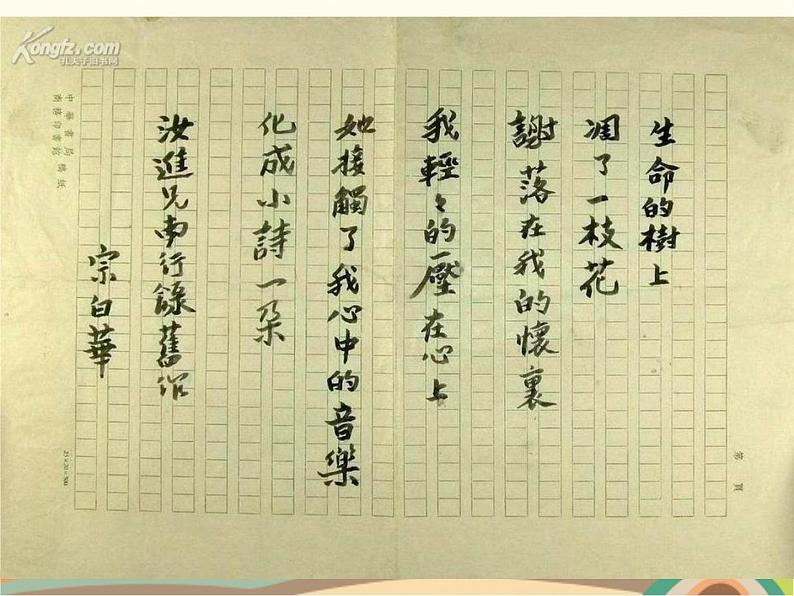 生命的樹上
凋了一枝花
謝落在我的懷裏
我輕々的壓在心上
她接觸了我心中的音樂
化成小詩一朵
汝進兄南行錄舊作
宗白華
中華書局
商務印書館
稿紙
第 頁
25×20=500
Kongfz.com
孔夫子旧书网